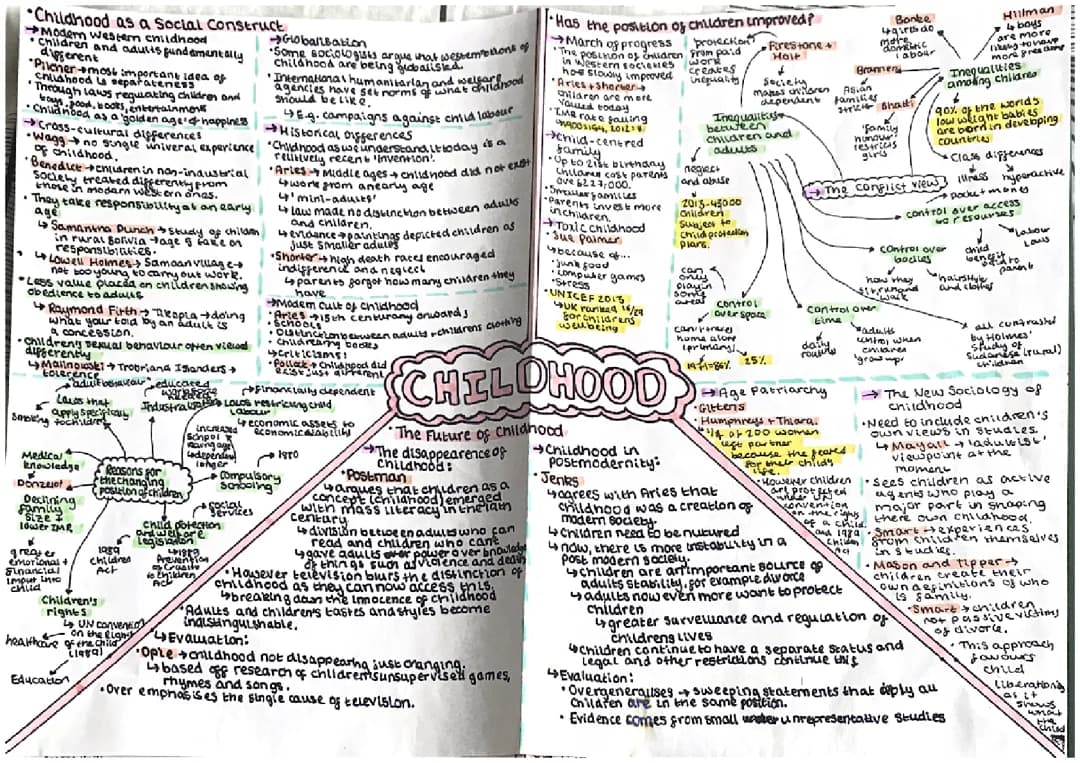 • Childhood as a Social Construct
→ Modern Western childhood
• children and adults fundamentally
different
• Pilcher → most important idea of
childhood is separateness
• Through laws regulating children and
toys, food, books, entertainment
• Childhood as a 'golden age' of happiness
→ Cross-cultural differences
• Wagg → no single univeral experience
of childhood.
• Benedict → children in non-industrial
society treated differently from
those in modern western ones.
• They take responsibility at an early
age
↳ Samantha Punch → study of children
in rural Bolivia → age 5 take on
responsibilities.
↳ Lowell Holmes → Samoan village →
not too young to carry out work.
• Less value placed on children showing
obedience to adults
↳ Raymond Firth → Tikopia → doing
what your told by an adult is
a concession.
• Childrens sexual behaviour often viewed
differently
↳ Malinowski → Trobriand Islanders →
tolerence
→ Globalisation
• Some sociologists argue that western notions of
childhood are being globalised.
• International humanitarian and welfare
agencies have set norms of what childhood
should be like.
↳ E.g. campaigns against child labour
→ Historical Differences
• Childhood as we understand it today is a
relitively recent 'invention'.
• Aries → Middle ages → childhood did not exist
↳ work from an early age
↳ 'mini-adults'
↳ law made no distinction between adults
and children.
↳ evidence → paintings depicted children as
just smaller adults
• Shorter → high death rates encouraged
indifference and neglect
↳ parents forgot how many children they
have
→ Modern cult of childhood
• Aries → 15th century onwards;
• Schools
• Distinction between adults + childrens clothing
• Childrens books
↳ criticisms:
• Pollock → childhood did
exist just different
• Has the position of children improved?
→ March of progress
• The position of children
in Western societies
has slowly improved
• Aries + Shorter →
children are more
valued today
• IMR rate falling
→ Child-centred
family
• Up to 21st birthday
children cost parents
ove £227,000.
• Smaller families
• Parents invest more
in children.
→ Toxic childhood
• Sue Palmer
↳ because of...
• junk food
• computer games
• stress
• UNICEF 2013
↳ UK ranked 16/29
for childrens
wellbeing
protection
from paid
work
creates
inequality
Firestone +
Holt
society
makes children
dependent
Inequalities
between
children and
adults
neglect
and abuse
2013 - 43000
children
subject to
child protection
plans.
can
only
play in
some
areas
control
over space
can't travel
home alone
(primary)
1971 = 86%
25%
Control over
time
daily
routine
adults
control when
children
grow up.
control over
bodies
how they
sit, run and
walk
hairstyle
and clothes
control over access
to resourses
pocket money
labour
laws
child
benefit
paid to
parent
all contrasted
by Holmes'
Study of
→ The Conflict View
Inequalities
among children
Bonke
↳ girls do
more
domestic
labour
Hillman
↳ boys
are more
likely to have
more freedom
Brannen
Asian
families
strict
Bhatti
'family
honour'
restricts
girls
90% of the worlds
low weight babies
are born in developing
countries
class differences
illness
hyperactive
CHILDHOOD
Reasons for
the changing
position of children
'adult behaviour'
Laws that
apply specifically
to children
Industrialisation
educated
→ financially dependent
Laws restricting child
labour
↳ economic assets to
economic liability
increased
school
leaving age
↳ dependent
longer
→ 1880
Compulsory
Schooling
social
services
Child protection
and welfare
legislation
1989
Children
Act
↳ 1889
Prevention
of Cruelty
to Children
Act
Medical
knowledge
Donzelot
Declining
family
size &
lower IMR
greater
emotional +
financial
imput into
child
Children's
rights
↳ UN convention
on the Rights
of the Child
(1989)
healthcare
Education
• The Future of Childhood
→ The disappearence of
Childhood:
• Postman
↳ argues that children as a
concept (childhood) emerged
with mass literacy in the 19th
century.
↳ division between adults who can
read and children who cant
↳ gave adults power over knowledge
of things such as violence and death
• However television blurs the distinction of
childhood as they can now access this.
↳ breaking down the innocence of childhood
• Adults and children's tastes and styles become
indistinguishable.
↳ Evaluation:
• Opie → childhood not disappearing just changing.
↳ based off research of childrens unsupervised games,
rhymes and songs.
• Over emphasises the single cause of television.
→ Childhood in
postmodernity:
• Jenks
↳ agrees with Aries that
childhood was a creation of
modern society.
↳ Children need to be nurtured
↳ now, there is more instability in a
post modern society.
↳ children are an important source of
adults stability, for example divorce
↳ adults now even more want to protect
children
↳ greater surveillance and regulation of
childrens lives
↳ children continue to have a separate status and
legal and other restrictions continue this
↳ Evaluation:
• Overgeneralises → sweeping statements that imply all
children are in the same position.
• Evidence comes from small unrepresentative studies
→ Age Patriarchy
• Gittens
• Humphreys + Thiara.
↳ 1/4 of 200 women
left partner
because the feared
for their child's
life.
• However children
are protected
under UN
convention
on the rights
of a child
and 1989
Children
Act
→ The New Sociology of
childhood
• Need to include children's
own views in studies.
↳ Mayall → 'adultist'
viewpoint at the
moment
• Sees children as active
agents who play a
major part in shaping
there own childhood.
• Smart → experiences
from children themselves
in studies.
• Mason and Tipper →
children create their
own definitions of who
is family.
• Smart → children
not passive victims
of divorce.
• This approach
favours
child
liberationists
as it
shows
what
the
child